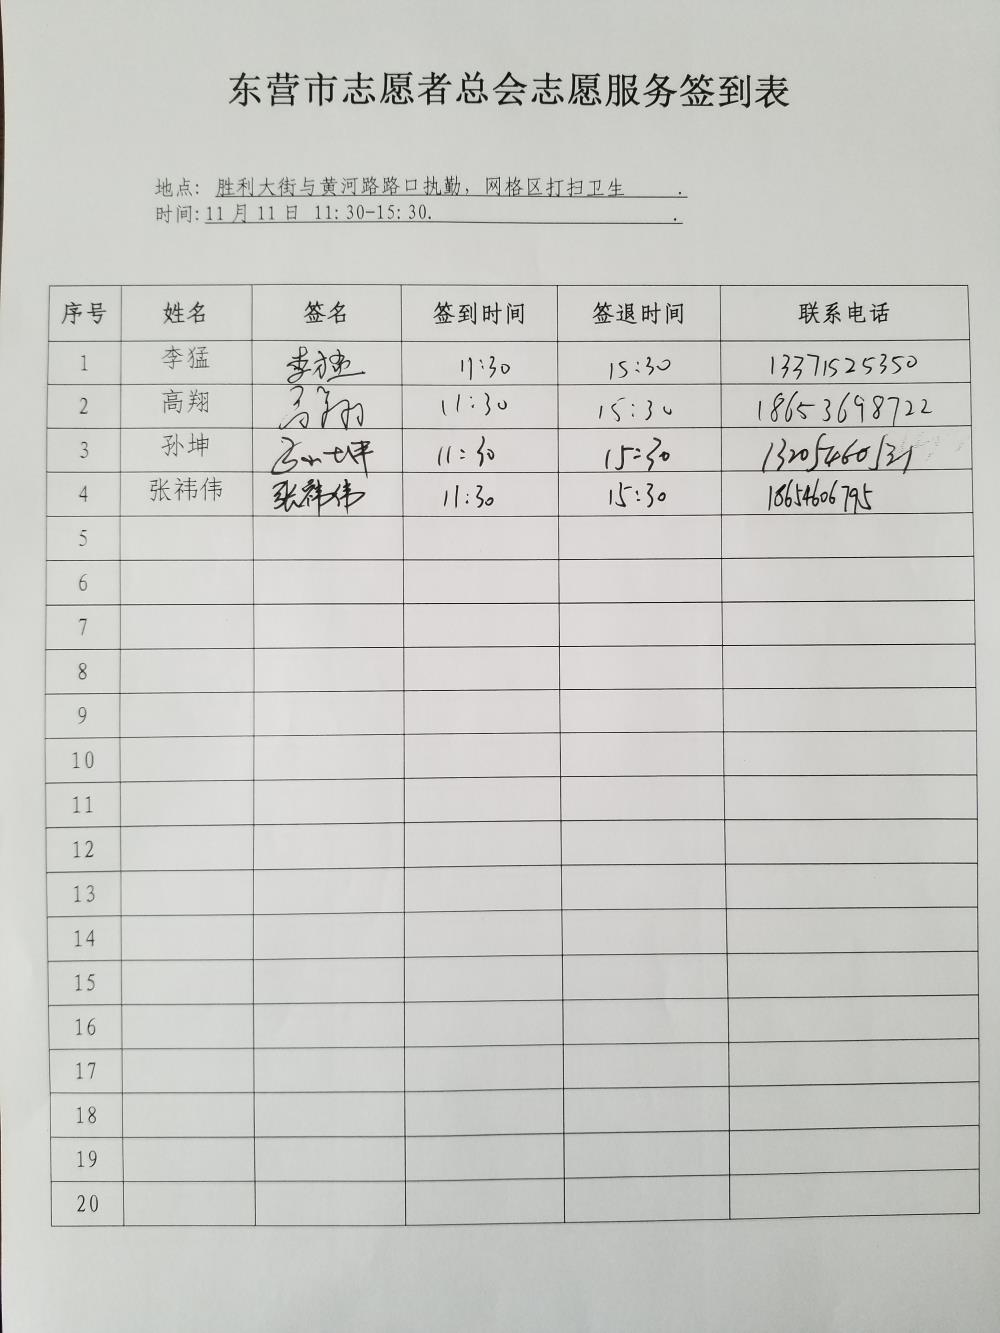 东营市志愿者总会志愿服务签到表
地点: 胜利大街与黄河路路口执勤，网格区打扫卫生 .
时间: 11月11日 11:30-15:30. .
序号 姓名 签名 签到时间 签退时间 联系电话
1 李猛 11:30 15:30 13371525350
2 高翔 高翔 11:30 15:30 18653698722
3 孙坤 孙坤 11:30 15:30
4 张祎伟 张祎伟 11:30 15:30 18654606795
5
6
7
8
9
10
11
12
13
14
15
16
17
18
19
20